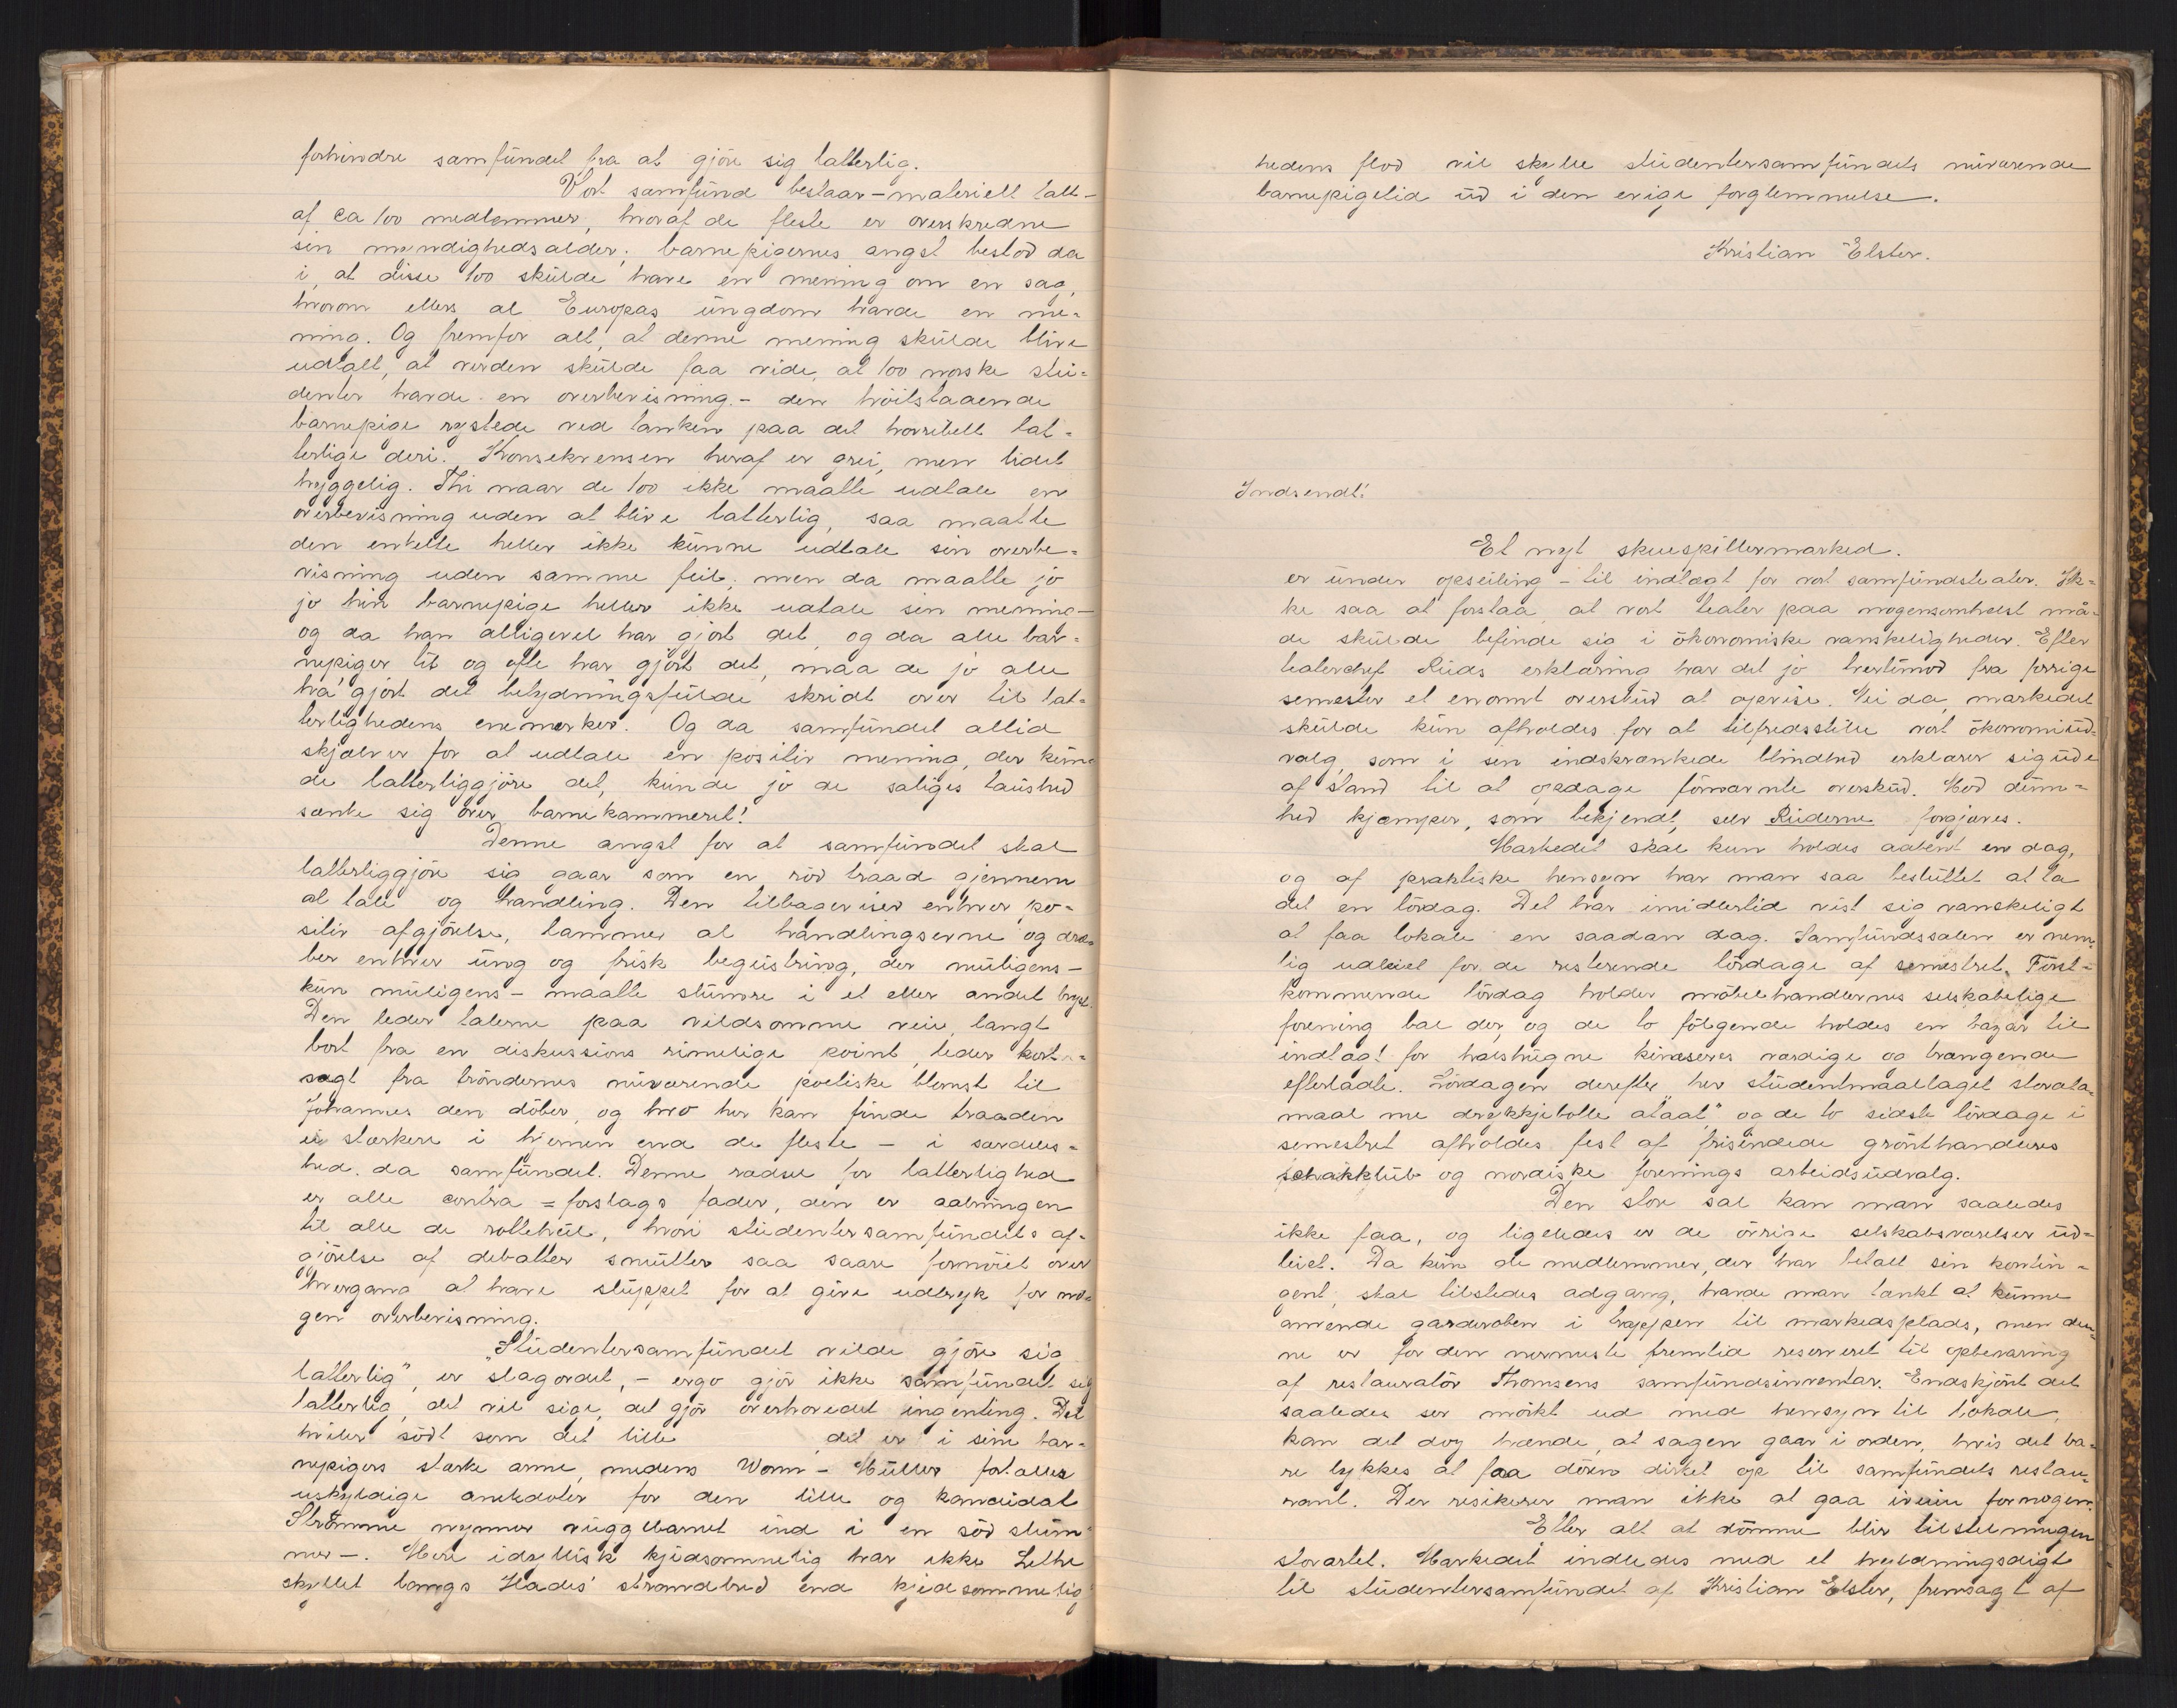 forhindre samfundet fra at gjöre sig latterlig.
Vort samfund bestaar - materielt talt -
af ca 100 medlemmer, hvoraf de fleste er overskredne
sin myndighedsalder; barnepigernes angst bestod da
i, at disse 100 skulde have en mening om en sag,
hvorom ellers al Europas ungdom havde en me=
ning. Og fremfor alt, at denne mening skulde blive
udtalt, at verden skulde faa vide, at 100 norske stu=
denter havde en overbevisning. - den höitstaaende
barnepige rystede ved tanken paa det horribelt lat=
terlige deri. Konsekvensen heraf er grei, men lidet
hyggelig. Thi naar de 100 ikke maatte udtale en
overbevisning uden at blive latterlig, saa maatte
den enkelte heller ikke kunne udtale sin overbe=
visning uden samme feil; men da maatte jo
jo hin barnepige heller ikke udtale sin mening -
og da han alligevel har gjort det, og da alle bar=
nepiger tit og ofte har gjort det, maa de jo alle
ha gjort det betydningsfulde skridt over til lat=
terlighedens enemerker. Og da samfundet altid
skjælver for at udtale en positiv mening, der kun=
de latterliggjöre det, kunde jo de saliges taushed
sænke sig over barnekammeret!
Denne angst for at samfundet skal
latterliggjöre sig gaar som en röd traad gjennem
al tale og handling. Den tilbageviser enhver po=
sitiv afgjörelse, lammer al handlingsevne og dræ=
ber enhver ung og frisk begeistring, der muligens -
kun muligens - maatte slumre i et eller andet bryst.
Den leder talerne paa vildsomme veie, langt
bort fra en diskussions rimelige point, leder kort=
sagt fra tröndernes nuværende poetiske blomst til
Johannes den döber, og hvo her kan finde traaden
er stærkere i hjernen end de fleste - i særdeles=
hed. da samfundet. Denne rædsel for latterlighed
er alle contra=forslags fader, den er aabningen
til alle de rottehul, hvori studentersamfundets af=
gjörelse af debatter smutter saa saare fornöiet over
hvergang at have sluppet for at give udtryk for no=
gen overbevisning.
"Studentersamfundet vilde gjöre sig
latterlig", er slagordet, - ergo gjör ikke samfundet sig
latterlig, det vil sige, det gjör overhovedet ingenting. Det
hviler södt som det lille det er i sin bar=
nepigers stærke arme, medens Worm-Müller fortæller
uskyldige anekdoter for den lille og kandidat
Strömme nynner vuggebarnet ind i en söd slum=
mer -. Mere idyllisk kjedsommelig har ikke Lethe
skyllet langs Hades' strandbred end kjedsommelig=
hedens flod vil skylle studentersamfundets nuværende
barnepigetid ud i den evige forglemmelse.
Kristian Elster.
Indsendt:
Et nyt skuespillermarked.
er under opseiling - til indtægt for vort samfundsteater. Ik=
ke saa at forstaa, at vort teater paa nogensomhelst må=
de skulde befinde sig i ökonomiske vanskeligheder. Efter
teaterchef Ruds erklæring har det jo tvertimod fra forrige
semester et enormt overskud at opvise. Nei da, markedet
skulde kun afholdes for at tilfredsstille vort ökonomiud=
valg, som i sin indskrænkede blindhed erklærer sig ude
af stand til at opdage fornævnte overskud. Mod dum=
hed kjæmper, som bekjendt, selv Ruderne forgjæves.
Markedet skal kun holdes aabent en dag,
og af praktiske hensyn har man saa besluttet at ta
det en lördag. Det har imidlertid vist sig vanskeligt
at faa lokale en saadan dag. Samfundssalen er nem=
lig udleiet for de resterende lördage af semestret. Först=
kommende lördag holder möbelhandlernes selskabelige
forening bal der, og de to fölgende holdes en bazar til
indtægt for halshugne kineseres værdige og trængende
efterladte. Lördagen derefter har studentmaallaget storata=
maal me drykkjebolle ataat" og de to sidste lördage i
semestret afholdes fest af frisindede grönthandleres
schakklub og nordiske forenings arbeidsudvalg.
Den store sal kan man saaledes
ikke faa, og ligeledes er de övrige selskabsværelser ud=
leiet. Da kun de medlemmer, der har betalt sin kontin=
gent, skal tilstedes adgang, havde man tænkt at kunne
anvende garderoben i trappen til markedsplads, men den=
ne er for den nærmeste fremtid reserveret til opbevaring
af restauratör Thomsens samfundsinventar. Endskjönt det
saaledes ser mörkt ud med hensyn til lokale,
kan det dog hænde, at sagen gaar i orden, hvis det ba=
re lykkes at faa dören dirket op til samfundets restau=
rant. Der resikerer man ikke at gaa iveien for nogen.
Efter alt at dömme blir tilstelningen
storartet. Markedet indledes med et hyldningsdigt
til studentersamfundet af Kristian Elster, fremsagt af